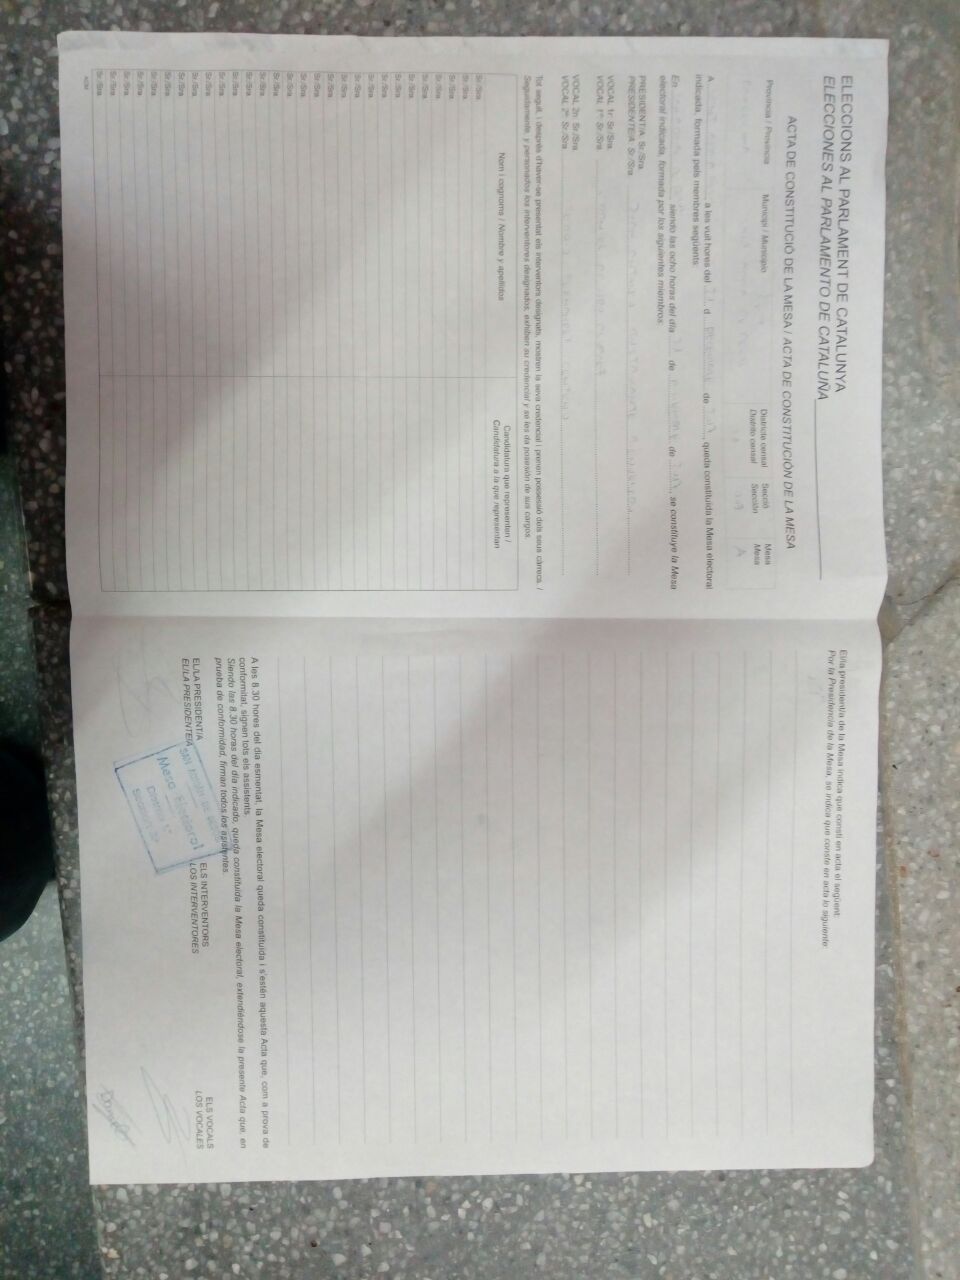 ELECCIONS AL PARLAMENT DE CATALUNYA
ELECCIONES AL PARLAMENTO DE CATALUÑA
ACTA DE CONSTITUCIÓ DE LA MESA / ACTA DE CONSTITUCIÓN DE LA MESA
Província / Provincia Municipi / Municipio Districte censal Secció Mesa
Distrito censal Sección Mesa
A
A a les vuit hores del d de , queda constituïda la Mesa electoral
indicada, formada pels membres següents:
En siendo las ocho horas del día de de , se constituye la Mesa
electoral indicada, formada por los siguientes miembros:
PRESIDENT/A Sr./Sra.
PRESIDENTE/A Sr./Sra.
VOCAL 1r. Sr./Sra.
VOCAL 1º. Sr./Sra.
VOCAL 2n. Sr./Sra.
VOCAL 2º. Sr./Sra.
Tot seguit, i després d'haver-se presentat els interventors designats, mostren la seva credencial i prenen possessió dels seus càrrecs. /
Seguidamente, y personados los interventores designados, exhiben su credencial y se les da posesión de sus cargos.
Nom i cognoms / Nombre y apellidos Candidatura que representen /
Candidatura a la que representan
Sr./Sra.
Sr./Sra.
Sr./Sra.
Sr./Sra.
Sr./Sra.
Sr./Sra.
Sr./Sra.
Sr./Sra.
Sr./Sra.
Sr./Sra.
Sr./Sra.
Sr./Sra.
Sr./Sra.
Sr./Sra.
Sr./Sra.
Sr./Sra.
Sr./Sra.
Sr./Sra.
Sr./Sra.
Sr./Sra.
Sr./Sra.
Sr./Sra.
Sr./Sra.
Sr./Sra.
Sr./Sra.
Sr./Sra.
Sr./Sra.
Sr./Sra.
Sr./Sra.
El/la president/a de la Mesa indica que consti en acta el següent:
Por la Presidencia de la Mesa, se indica que conste en acta lo siguiente:
A les 8.30 hores del dia esmentat, la Mesa electoral queda constituïda i s'estén aquesta Acta que, com a prova de
conformitat, signen tots els assistents.
Siendo las 8.30 horas del día indicado, queda constituida la Mesa electoral, extendiéndose la presente Acta que, en
prueba de conformidad, firman todos los asistentes.
EL/LA PRESIDENT/A ELS INTERVENTORS ELS VOCALS
EL/LA PRESIDENTE/A LOS INTERVENTORES LOS VOCALES
Mesa Electoral